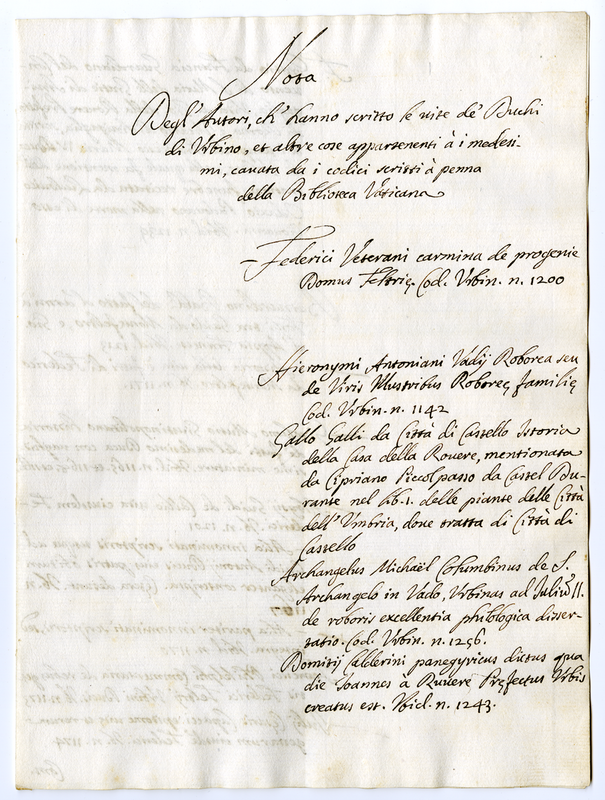 Nota
Degl' Autori, ch' hanno scritto le vite de' Duchi
di Urbino, et altre cose appartenenti à i medesi-
mi, cavata da i codici scritti à penna
della Biblioteca Vaticana
Federici Veterani carmina de progenie
Domus Feltrię. Cod. Urbin. n. 1200
Hieronymi Antoniani Vadij Roborea seu
de Viris Illustribus Roboreę familię
Cod. Urbin. n. 1142
Gallo Galli da Città di Castello Istoria
della Casa della Rovere, mentionata
da Cipriano Piccolpasso da Castel Du-
rante nel lib. 1. delle piante delle Città
dell' Umbria, dove tratta di Città di
Castello
Archangelus Michaël Columbinus de S.
Archangelo in Vado, Urbinas ad Juliū II.
de roboris excellentia philologica disser-
tatio. Cod. Urbin. n. 1256.
Domitij Calderini panegyricus dictus qua
die Joannes à Ruvere Pręfectus Urbis
creatus est. Ibid. n. 1243.